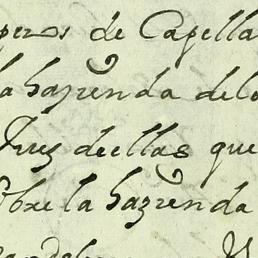 pesos de Capella
la hazienda delo
Juez deellas que
sobre la hazienda